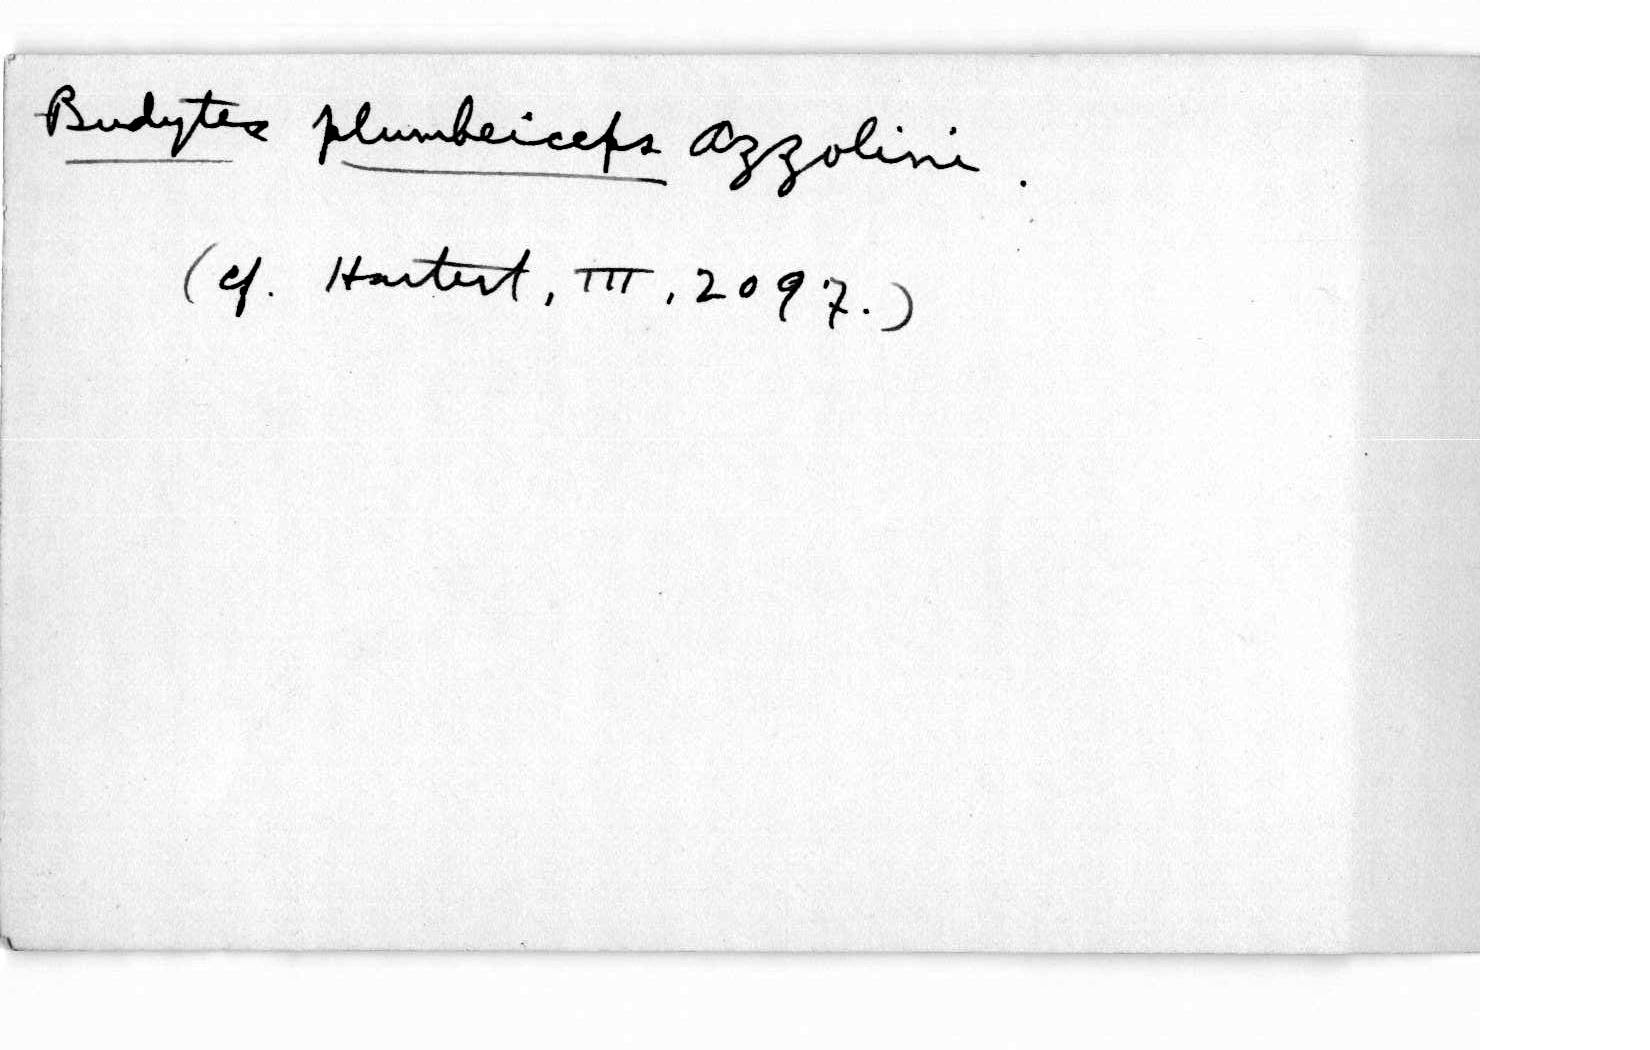 Budytes plumbeiceps Azzolini.
(cf. Hartert, III, 2097.)